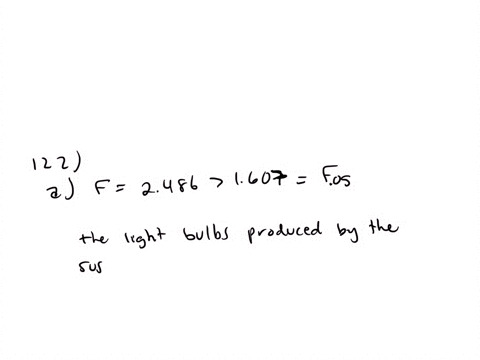 122)
a) F = 2.486 > 1.607 = F.05
the light bulbs produced by the
sus